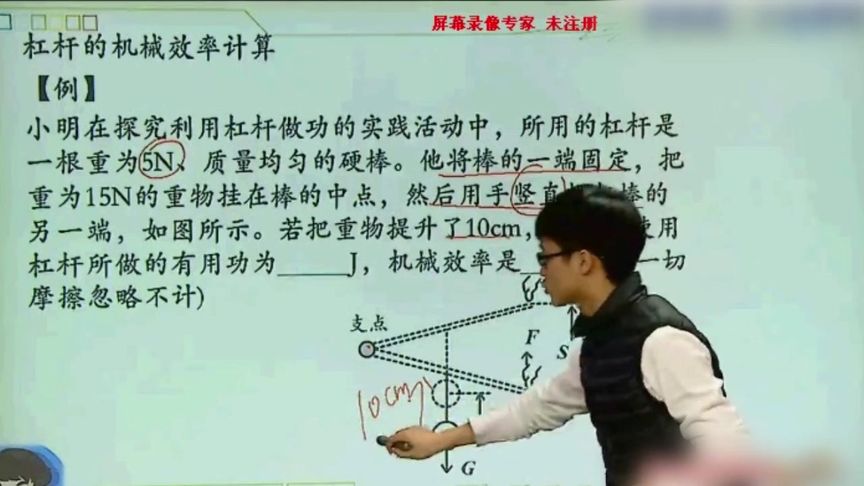 屏幕录像专家 未注册
杠杆的机械效率计算
【例】
小明在探究利用杠杆做功的实践活动中，所用的杠杆是
一根重为5N、质量均匀的硬棒。他将棒的一端固定，把
重为15N的重物挂在棒的中点，然后用手竖直 棒的
另一端，如图所示。若把重物提升了10cm， 使用
杠杆所做的有用功为_____J，机械效率是 一切
摩擦忽略不计)
支点
F
S
10cm
G